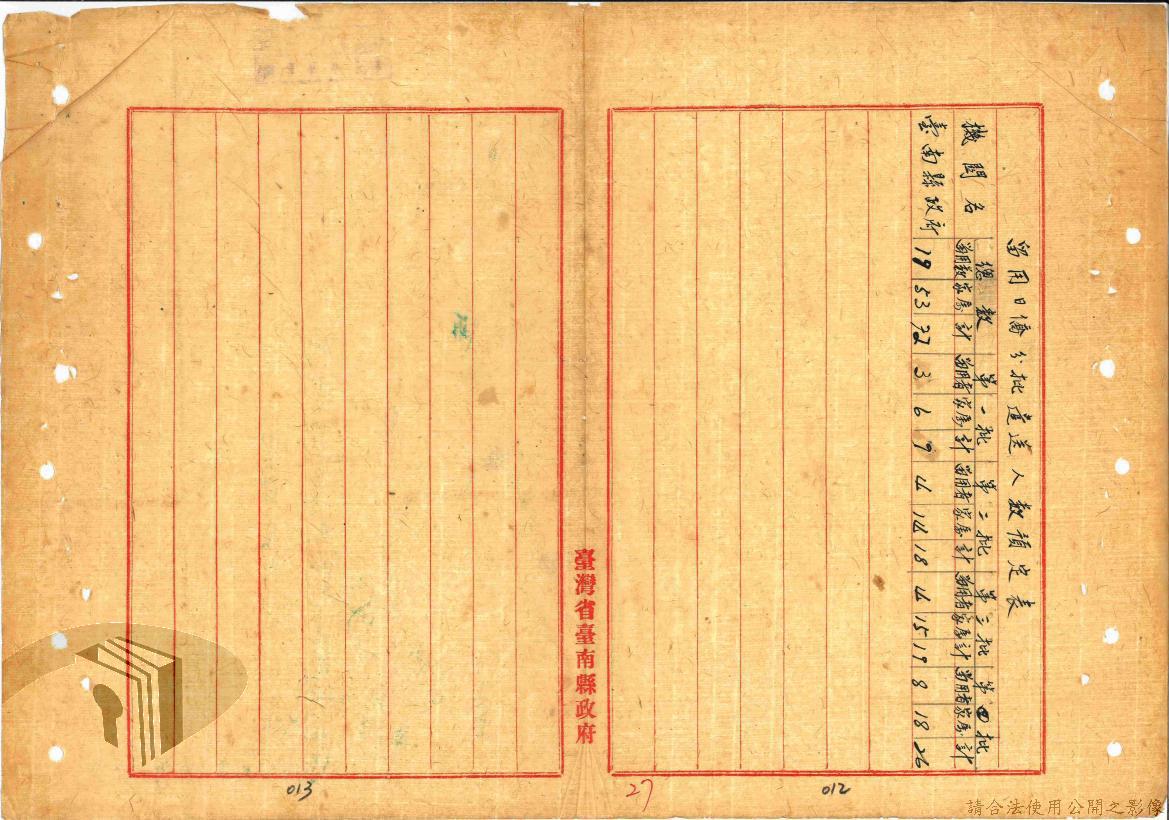 留用日僑分批遣送人數預定表
機関名 總數 第一批 第二批 第三批 第四批
留用数 家屬 計 留用者 家屬 計 留用者 家屬 計 留用者 家屬 計 留用者 家屬 計
臺南縣政府 19 53 72 3 6 9 4 14 18 4 15 19 8 18 26
臺灣省臺南縣政府
012
27
013
請合法使用公開之影像